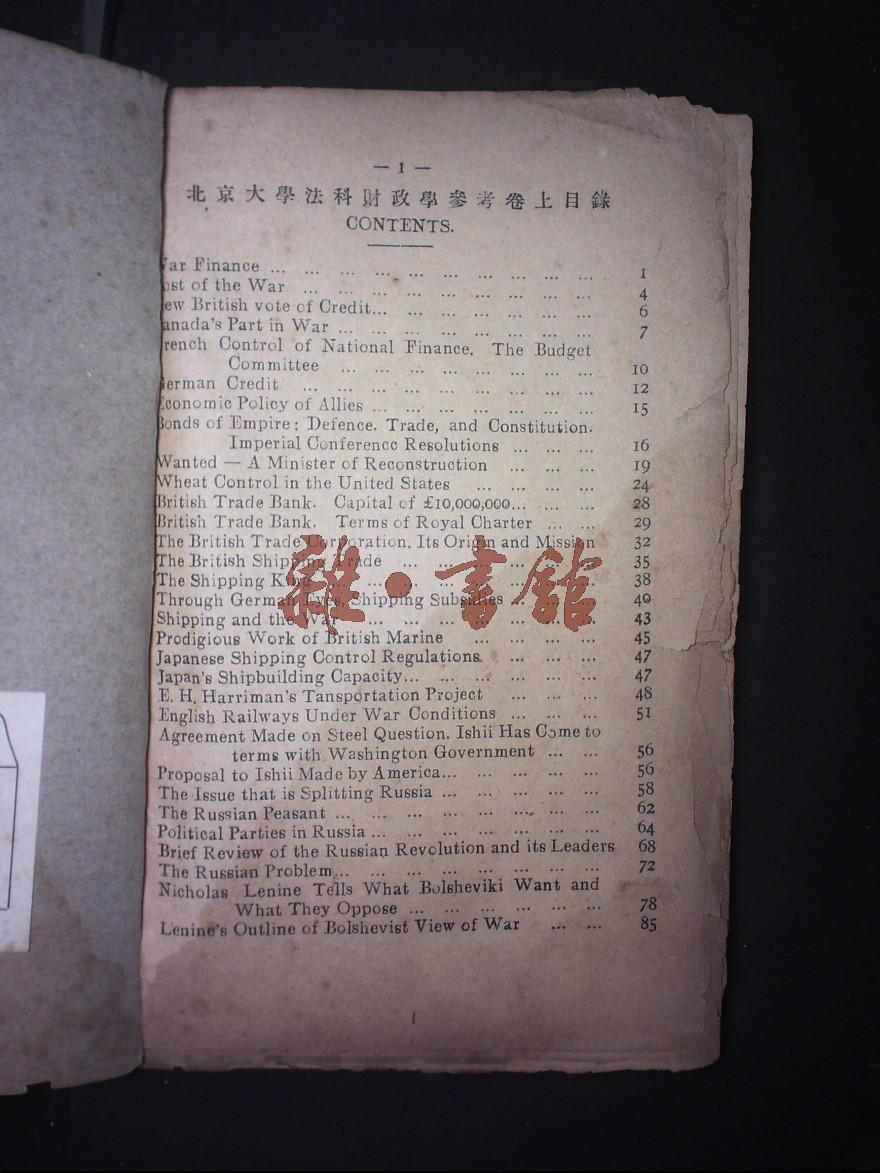 — 1 —
北京大學法科財政學參考卷上目錄
CONTENTS.
War Finance ... ... ... ... ... ... ... ... ... ... 1
Cost of the War ... ... ... ... ... ... ... ... ... 4
New British vote of Credit... ... ... ... ... ... ... 6
Canada's Part in War ... ... ... ... ... ... ... ... 7
French Control of National Finance. The Budget
Committee ... ... ... ... ... ... ... ... 10
German Credit ... ... ... ... ... ... ... ... ... 12
Economic Policy of Allies ... ... ... ... ... ... ... 15
Bonds of Empire: Defence. Trade, and Constitution.
Imperial Conference Resolutions ... ... ... 16
Wanted — A Minister of Reconstruction ... ... ... 19
Wheat Control in the United States ... ... ... ... 24
British Trade Bank. Capital of £10,000,000... ... ... 28
British Trade Bank. Terms of Royal Charter ... ... 29
The British Trade Corporation, Its Origin and Mission 32
The British Shipping Trade ... ... ... ... ... ... 35
The Shipping King ... ... ... ... ... ... ... ... 38
Through German Eyes, Shipping Subsidies ... ... ... 40
Shipping and the War ... ... ... ... ... ... ... 43
Prodigious Work of British Marine ... ... ... ... 45
Japanese Shipping Control Regulations. ... ... ... 47
Japan's Shipbuilding Capacity... ... ... ... ... ... 47
E. H. Harriman's Tansportation Project ... ... ... 48
English Railways Under War Conditions ... ... ... 51
Agreement Made on Steel Question. Ishii Has Come to
terms with Washington Government ... ... 56
Proposal to Ishii Made by America... ... ... ... ... 56
The Issue that is Splitting Russia ... ... ... ... ... 58
The Russian Peasant ... ... ... ... ... ... ... ... 62
Political Parties in Russia ... ... ... ... ... ... ... 64
Brief Review of the Russian Revolution and its Leaders 68
The Russian Problem... ... ... ... ... ... ... ... 72
Nicholas Lenine Tells What Bolsheviki Want and
What They Oppose ... ... ... ... ... ... 78
Lenine's Outline of Bolshevist View of War ... ... 85
雜·書館